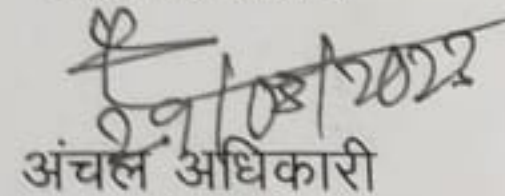 29/08/2022
अंचल अधिकारी